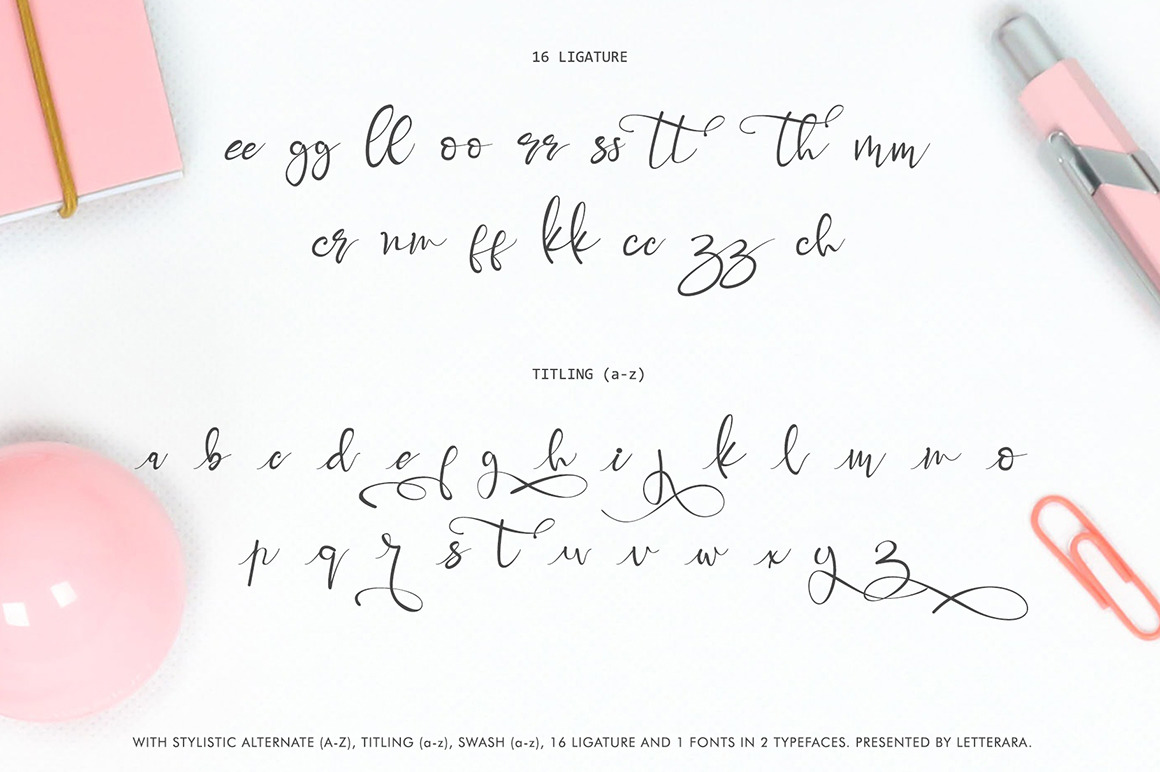 16 LIGATURE
ee gg ll oo rr ss tt th mm
cr nm ff kk cc zz ch
TITLING (a-z)
a b c d e f g h i j k l m n o
p q r s t u v w x y z
WITH STYLISTIC ALTERNATE (A-Z), TITLING (a-z), SWASH (a-z), 16 LIGATURE AND 1 FONTS IN 2 TYPEFACES. PRESENTED BY LETTERARA.